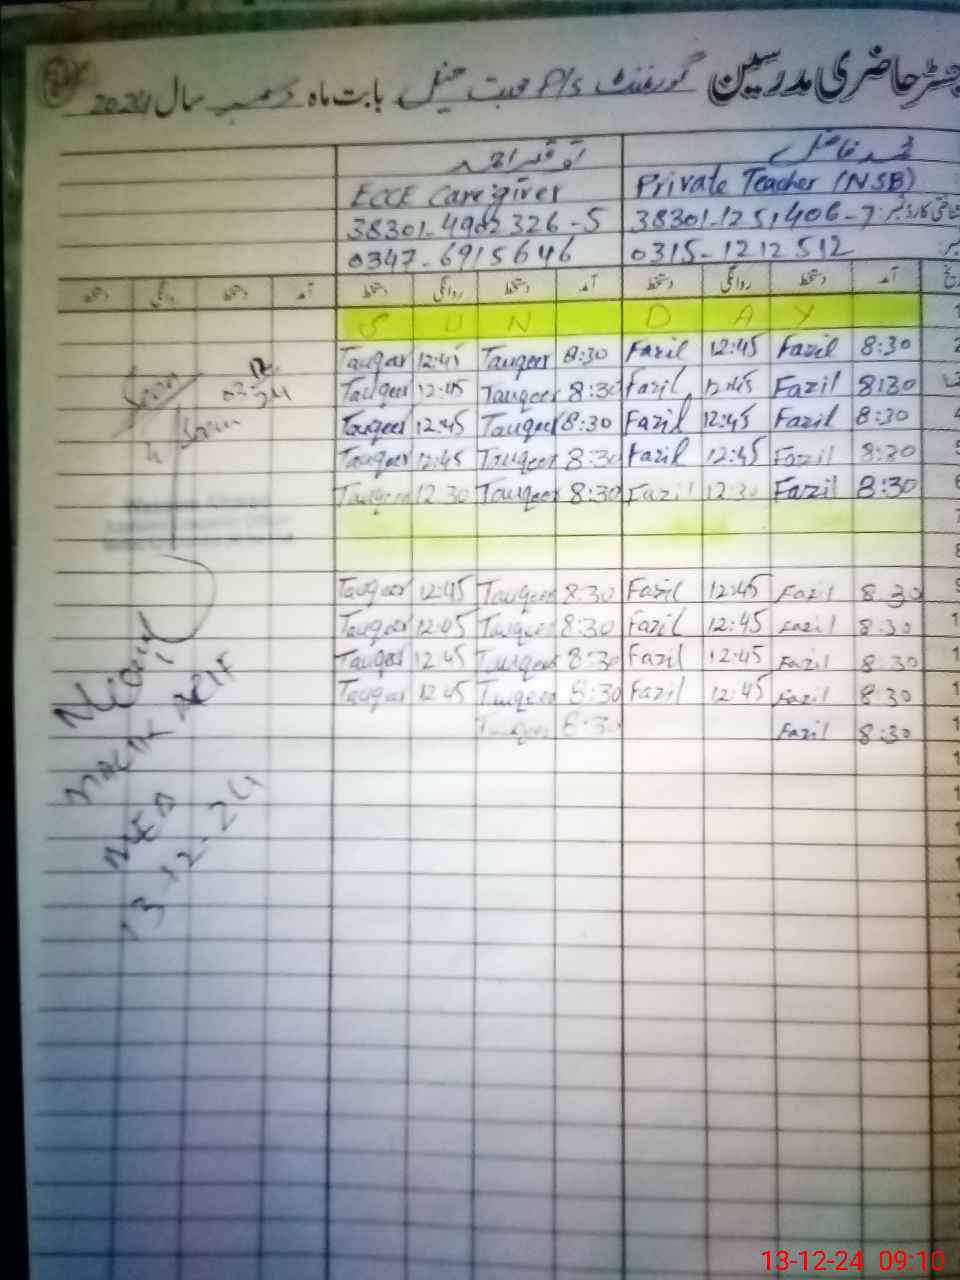 رجسٹر حاضری مدرسین گورنمنٹ P/s محبت بابت ماہ دسمبر سال 2024
محمد فاضل توقیر احمد
Private Teacher (NSB) ECCE Caregiver
38301-1251406-7 38301-4902326-5
0315-1212512 0347-6915646
آمد دستخط روانگی دستخط آمد دستخط روانگی دستخط آمد دستخط روانگی دستخط
1 S U N D A Y
2 8:30 Fazil 12:45 Fazil 8:30 Tauqeer 12:45 Tauqeer
3 8:30 Fazil 12:45 Fazil 8:30 Tauqeer 12:45 Tauqeer
4 8:30 Fazil 12:45 Fazil 8:30 Tauqeer 12:45 Tauqeer
5 8:30 Fazil 12:45 Fazil 8:30 Tauqeer 12:45 Tauqeer
6 8:30 Fazil 12:30 Fazil 8:30 Tauqeer 12:30 Tauqeer
7
8
9 8:30 Fazil 12:45 Fazil 8:30 Tauqeer 12:45 Tauqeer
1 8:30 Fazil 12:45 Fazil 8:30 Tauqeer 12:45 Tauqeer
1 8:30 Fazil 12:45 Fazil 8:30 Tauqeer 12:45 Tauqeer
1 8:30 Fazil 12:45 Fazil 8:30 Tauqeer 12:45 Tauqeer
1 8:30 Fazil 8:30 Tauqeer
03-12-24
MALIK ARIF
MEA
13-12-24
13-12-24 09:10